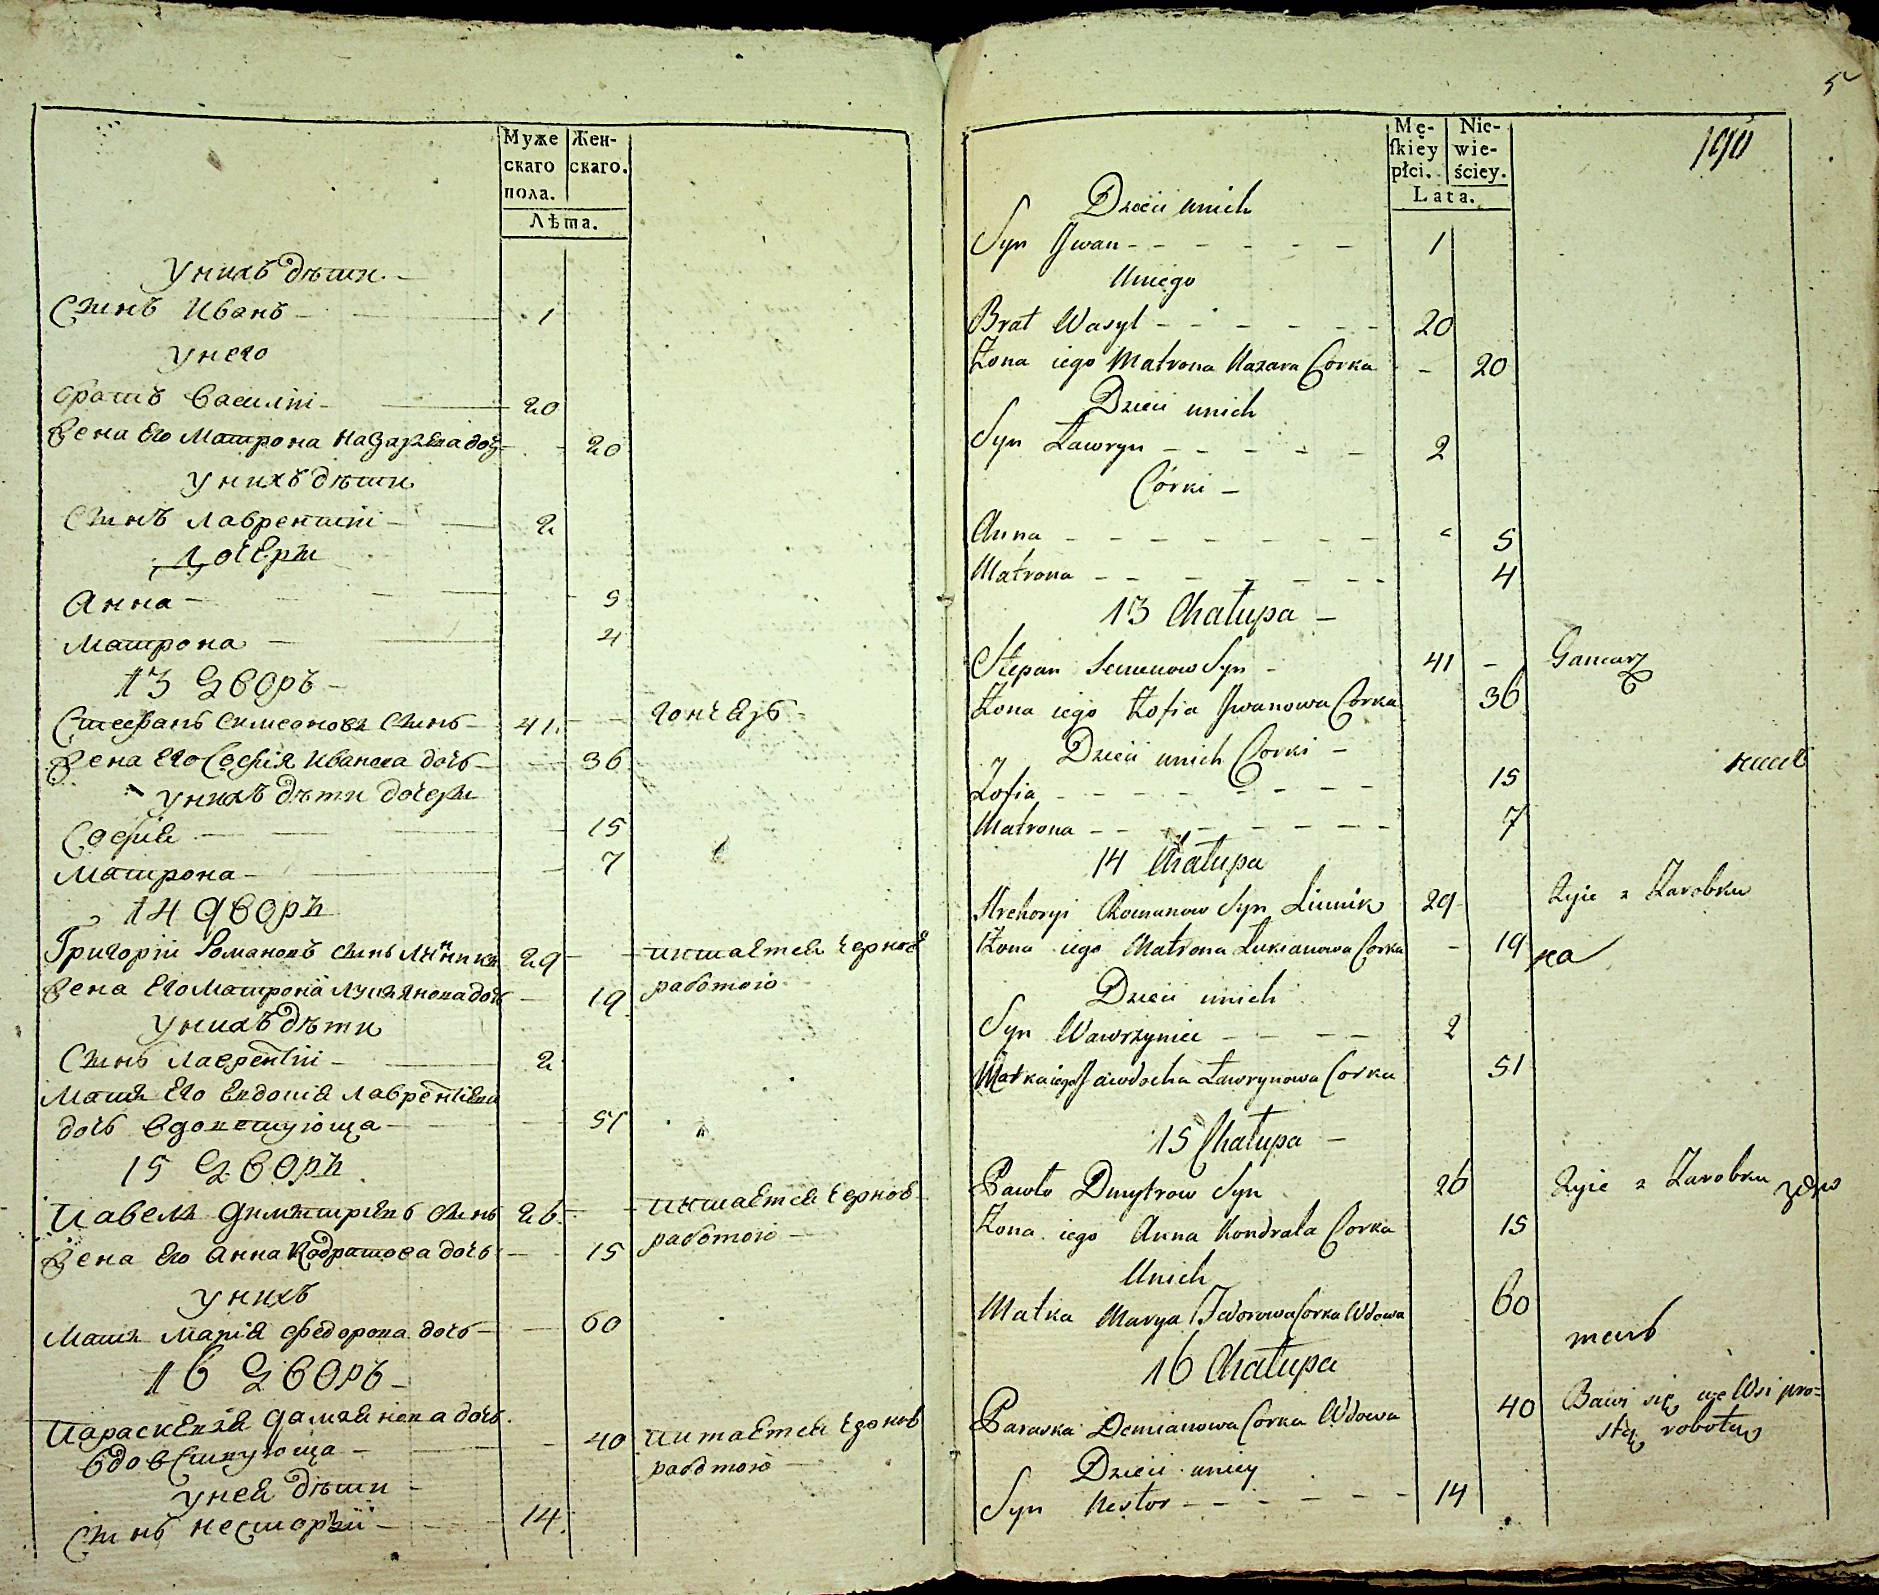 Муже Жен-
скаго скаго.
пола.
Лѣта.
У нихъ дѣти
Сынъ Иванъ 1
У него
братъ Василій 20
Жена его Матрона Назарева дочь 20
У нихъ дѣти
Сынъ Лаврентій 2
Дочери
Анна 5
Матрона 4
13 дворъ
Стефанъ Симеоновъ сынъ 41 гончеръ
Жена его Софія Иванова дочь 36
У нихъ дѣти дочери
Софія 15
Матрона 7
14 дворъ
Григорій Романовъ сынъ 29 питается черною
Жена его Матрона Лукянова дочь 19 работою
У нихъ дѣти
Сынъ Лаврентій 2
Матъ его Евдокія Лаврентіева
дочь вдовствующа 51
15 дворъ
Павелъ Димитріевъ сынъ 26 питается черною
Жена его Анна Кодратова дочь 15 работою
У нихъ
Матъ Марія Федорова дочь 60
16 дворъ
Параскевія Даміанова дочь
вдовствующа 40 питается черною
работою
У ней дѣти
Сынъ Несторій 14
5
190
Mę- Nie-
ſkiey wie-
płci. ściey.
Lata.
Dzieci unich
Syn Jwan 1
Uniego
Brat Wasyl 20
Żona iego Matrona Nazara Corka 20
Dzieci unich
Syn Ławryn 2
Córki
Anna 5
Matrona 4
13 Chałupa
Stepan Semenow Syn 41 Garncarz
Żona iego Zofia Jwanowa Corka 36
Dzieci unich Corki
Zofia 15
Matrona 7
14 Chałupa
Hrehoryi Romanow Syn 29 Żyie z Zarobku
Żona iego Matrona Łukianowa Corka 19
Dzieci unich
Syn Wawrzyniec 2
Matka iego Jawdocha Ławrynowa Corka 51
15 Chałupa
Pawło Dmytrow Syn 26 Żyie z Zarobku
Żona iego Anna Kondrata Corka 15
Unich
Matka Marya Fedorowa Corka Wdowa 60
16 Chałupa
Paraska Demianowa Corka Wdowa 40 Bawi się we Wsi pro-
stą robotą
Dzieci uniey
Syn Nestor 14